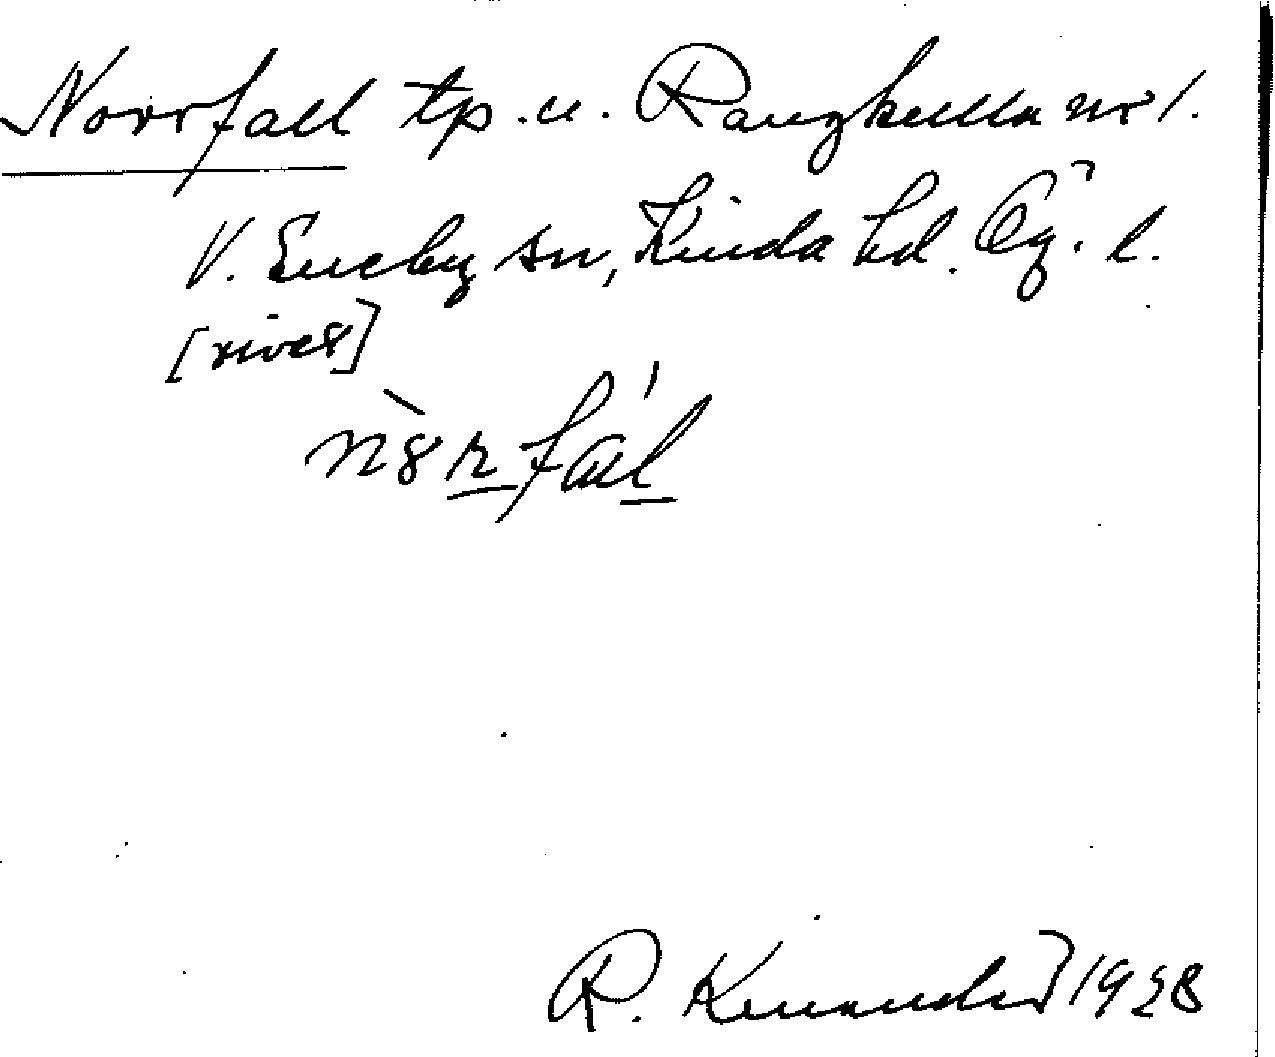 Norrfall tp. u. Rangkulla nr 1.
V. Eneby sn, Kinda hd. Ög. l.
[rivet]
n8rfal
R. Kinander 1928